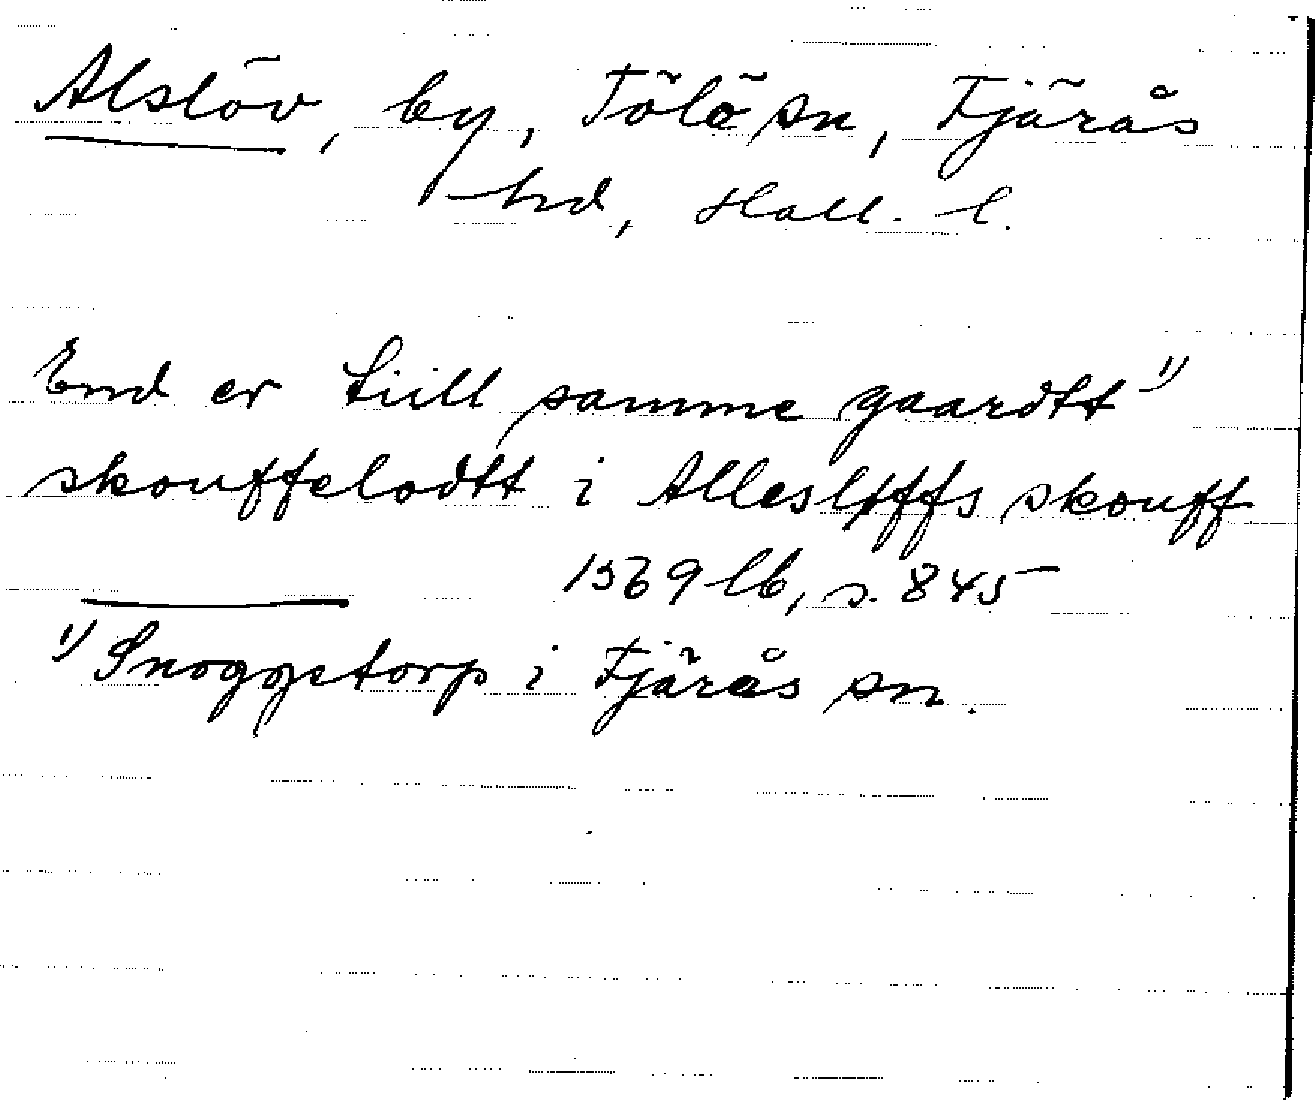 Alslöv, by, Tölö sn, Fjärås
hd, Hall. l.
End er tiill samme gaardtt 1)
skouffelodtt i Allesløffs skouff
1569 lb, s. 845
1) Snoggetorp i Fjärås sn.